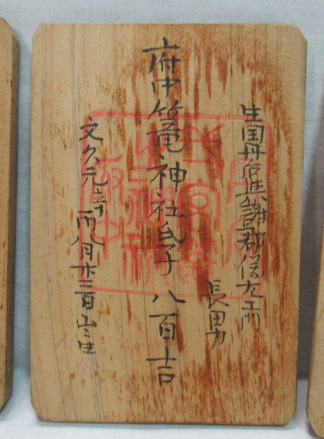 生国丹后與謝郡信左エ門
長男
府中篭神社氏子 八百吉
文久元辛酉八月廿二日出生